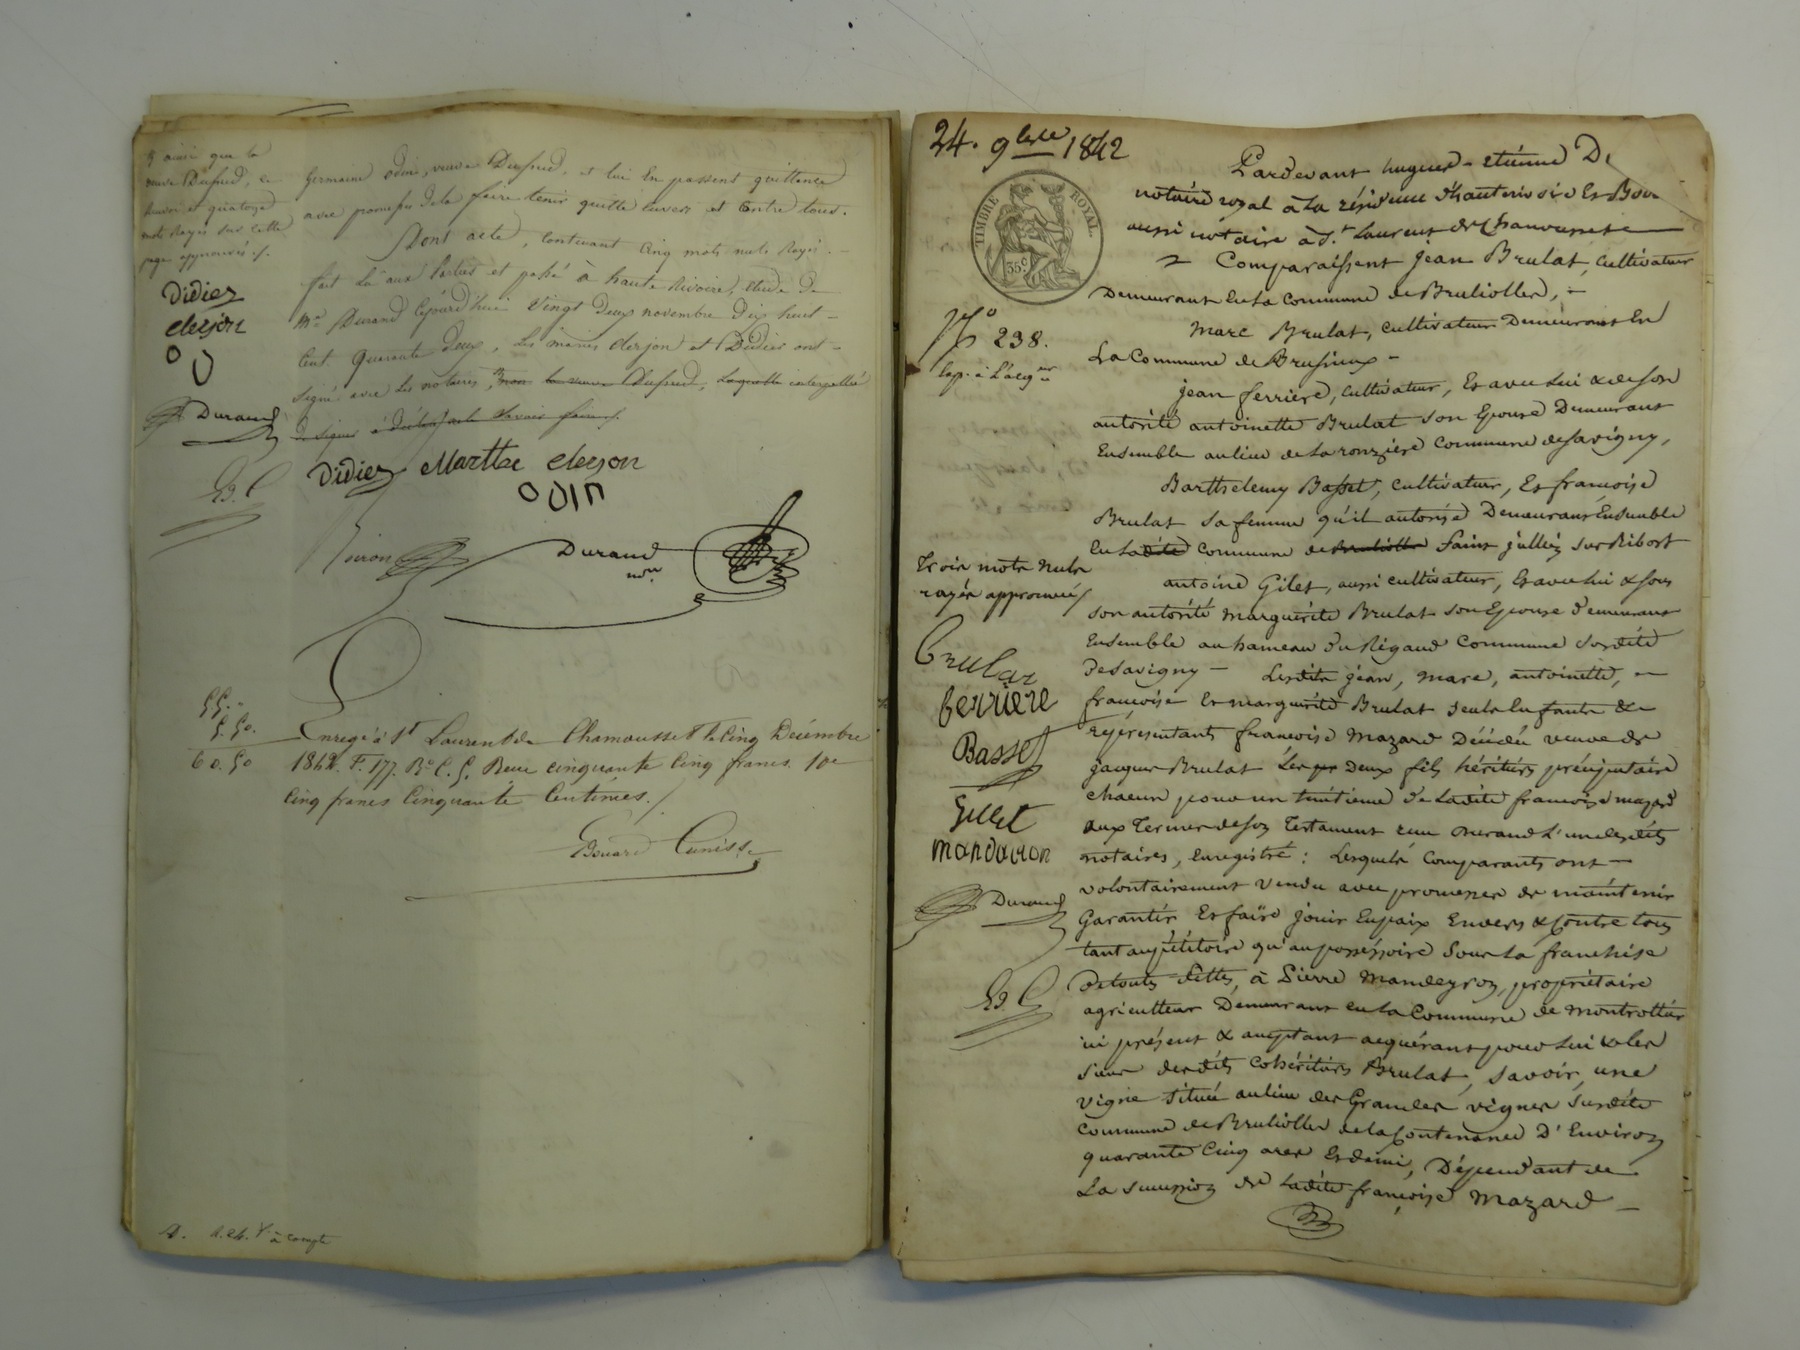 ainsi que la
veuve Dufud, ce
mots rayés sur cette
page approuvés ./.
Didier
clerjon
O U
Durand
germaine odin, veuve Dufud, et lui En passent quittance
avec promesse de le faire tenir quitte envers et Contre tous.
Dont acte, contenant Cinq mots nuls rayés.
fait lu aux Parties et passé à haute Rivoire, étude de
Me Durand Cejourd'hui Vingt Deux novembre Dix huit
Cent Quarante Deux, Les mêmes Clerjon et Didier ont
signé avec les notaires, non la veuve Dufud, Laquelle interpellée
de signer a déclaré ne le savoir faire ./.
Didier Marthe clerjon
ODIN
Durand
nre
55.
5.50.
60.50
Enregé à St Laurent de Chamousset le Cinq Décembre
1842. F. 177. Ro C. 5. Reçu cinquante Cinq francs. 10e
Cinq francs Cinquante Centimes./
à compte
24. 9bre 1842
TIMBRE ROYAL
35 c
No 238.
Exp. à L'acqr
Trois mots nuls
rayés approuvés/
Brulat
ferriere
Basset
Gillet
mandairon
Durand
Pardevant hugues-etiénne D
notaire royal à La résidence d'hauterivoire Et Bou
aussi notaire à St Laurent de Chamousset
Comparaissent Jean Brulat, Cultivateur
Demeurant En La Commune de Brullioller,
Marc Brulat, Cultivateur Demeurant En
La Commune de Brussieux
Jean ferriere, Cultivateur, Et avec Lui & de son
autorité antoinette Brulat son Epouse Demeurant
Ensemble au lieu de La ronziere Commune de Savigny,
Barthelemy Basset, Cultivateur, Et francoise
Brulat Sa femme qu'il autorise Demeurant Ensemble
En La dite Commune de Brulioller Saint jullien sur Bibost
antoine Gilet, aussi cultivateur, Et avec Lui & sous
son autorité marguerite Brulat son Epouse demeurant
Ensemble au hameau du Rigaud Commune susdite
De Savigny — Lesdits jean, marc, antoinette,
françoise Et marguerite Brulat seuls Enfants &
représentants francoise Mazard Décédée veuve de
jacques Brulat Les Deux fils héritiers préciputaire
chacun pour un huitieme de Ladite francoise mazard
aux Termes de son Testament reçu Durand L'un desdits
notaires, Enregistré : Lesquels Comparants ont
volontairement Vendu avec promesse de maintenir
Garantir Et faire jouir En paix Envers & Contre tous
tant au pétitoire qu'au possessoire Sous La franchise
De toutes dettes, à Pierre Mandeyron, propriétaire
agriculteur Demeurant en La Commune de Montrottier
ici présent & acceptant acquérant pour Lui & les
siens desdits cohéritiers Brulat, Savoir, une
vigne située au lieu des Grandes vignes susdite
Commune de Brulioller de la Contenance D'Environ
quarante Cinq ares Et demi, Dépendant de
La succession de Ladite françoise Mazard